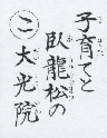 子育てと
臥龍松の
㊁大光院